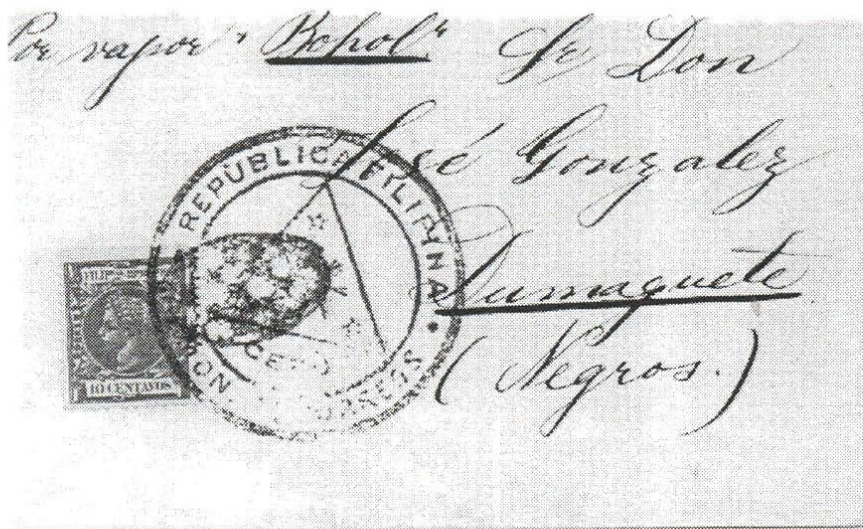 Por vapor "Bohol" Sr Don
José Gonzalez
Dumaguete
(Negros.)
REPÚBLICA FILIPINA
CORREOS
CEBU
10 CENTAVOS